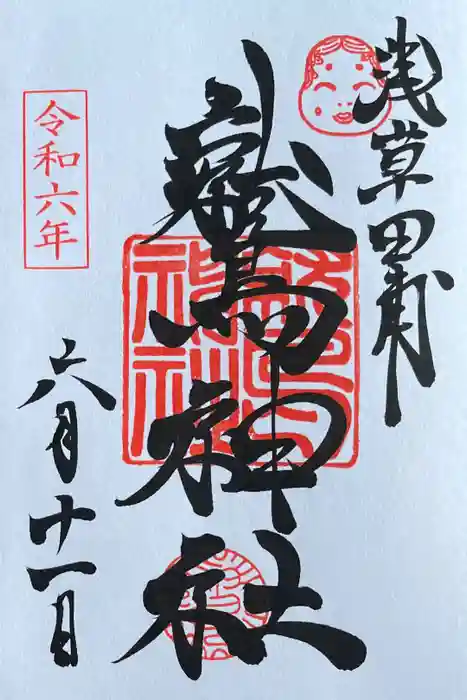 浅草田甫
鷲神社
令和六年
六月十一日